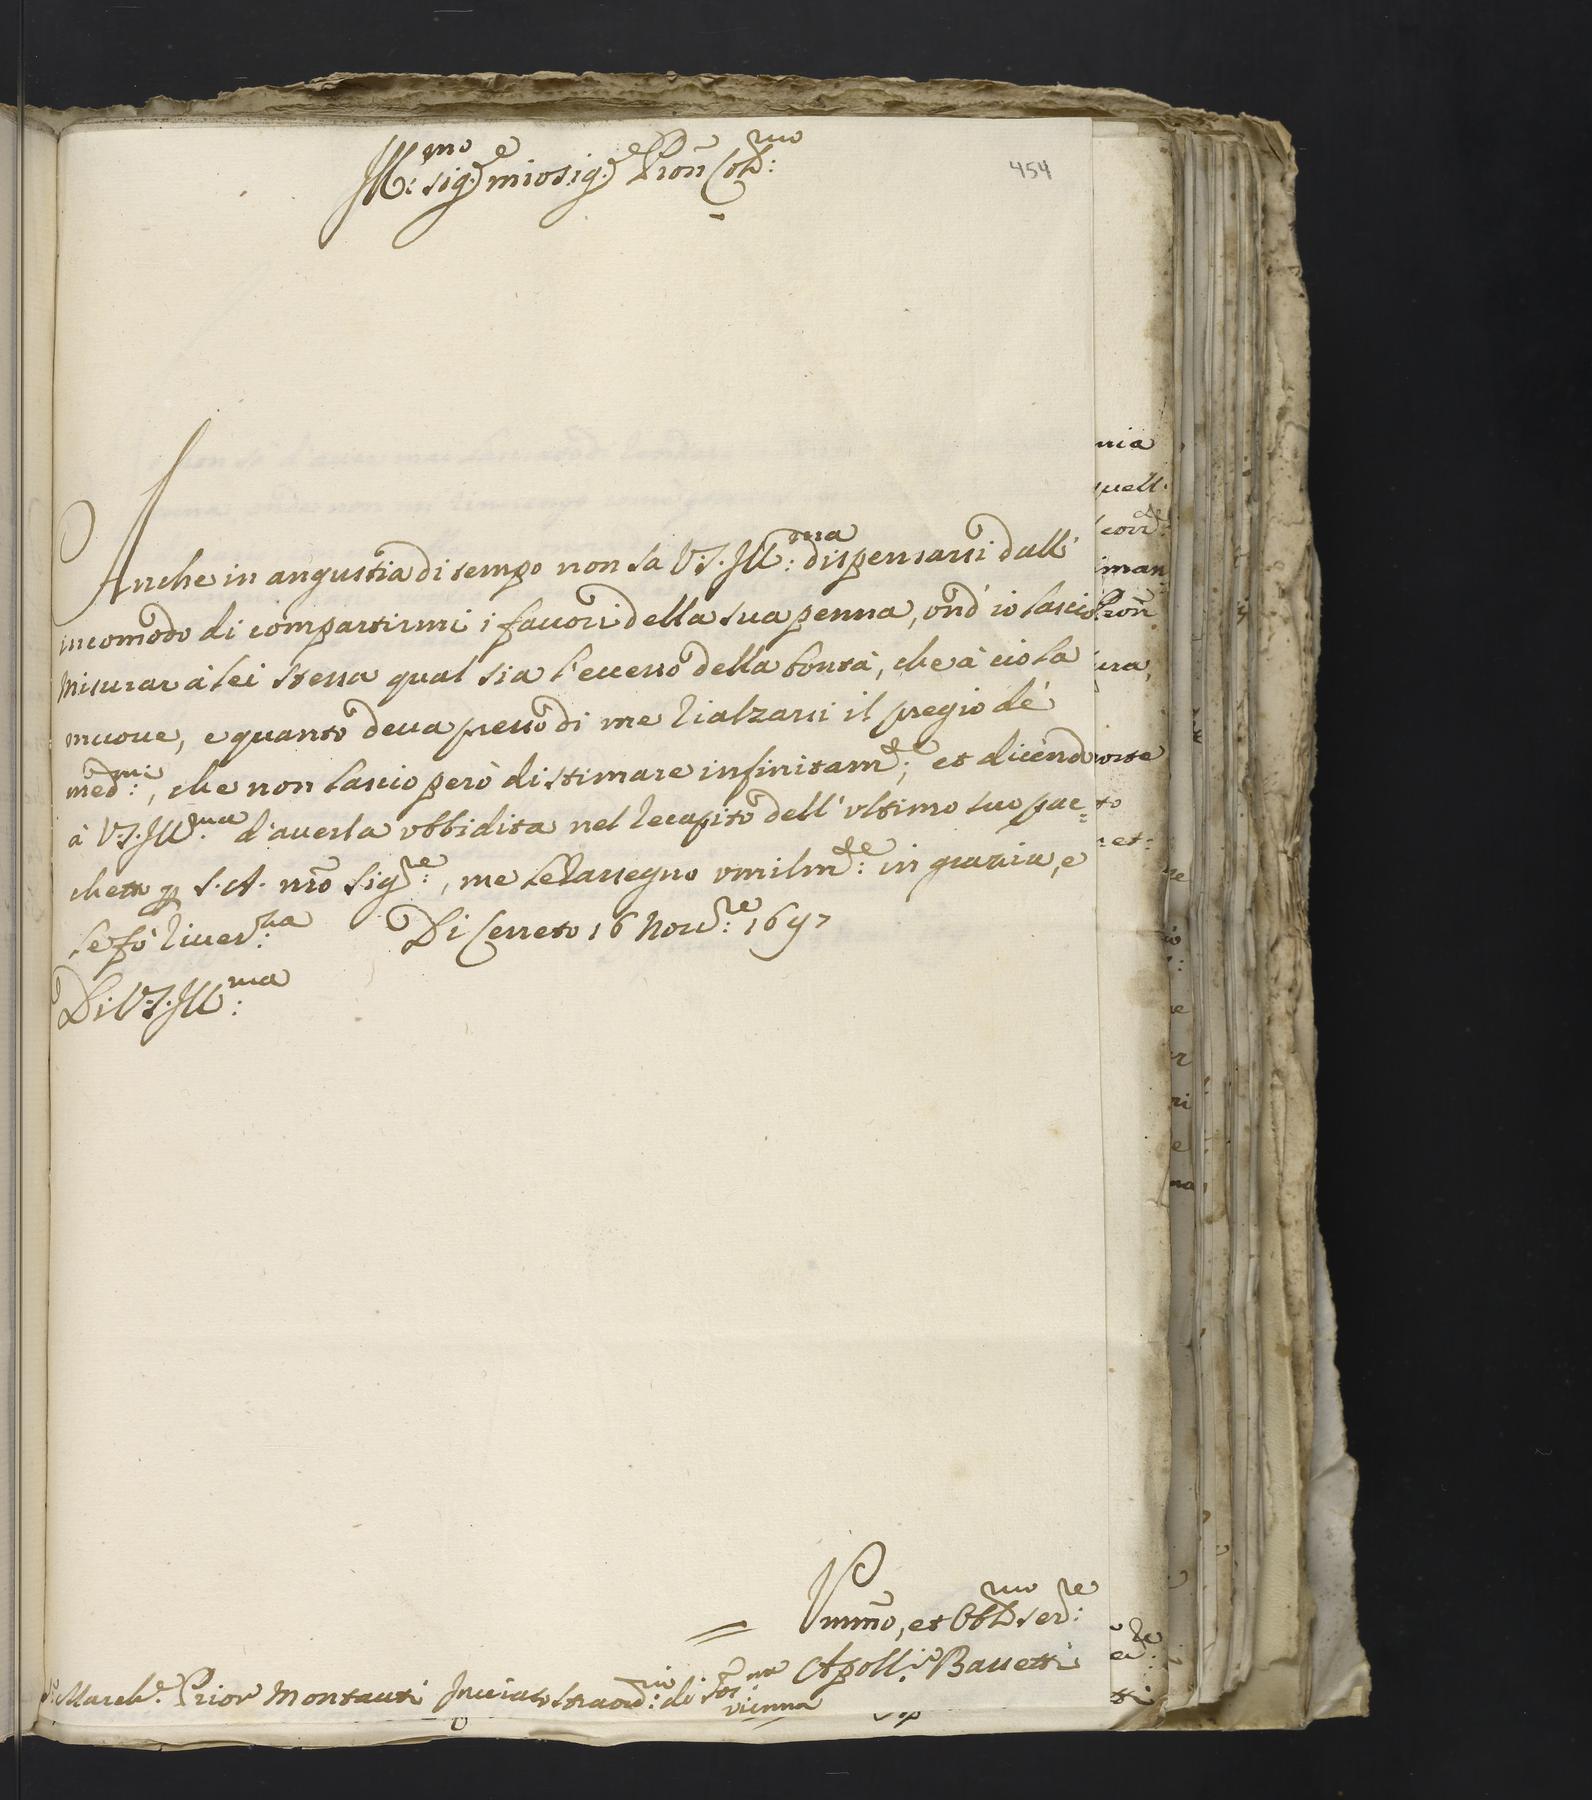 454
Ill:mo Sig:re mio Sig:re Pron Col:mo
Anche in angustia di tempo non sa V.S. Ill:ma dispensarsi dall'
incomodo di compartirmi i favori della sua penna, ond' io lascio
misurar à lei stessa qual sia l'eccesso della bontà, che à cio la
muove, e quanto deva presso di me rialzarsi il pregio de'
med:mi, che non lascio però di stimare infinitam:te; et dicendo
à V.S. Ill:ma d'averla obbidita nel recapito dell' ultimo suo pac=
chetto p S. A. nrõ Sig:re, me le rassegno umilm:te in grazia, e
le fò river:za Di Cerreto 16 Nov:re 1697
Di V.S. Ill:ma
Ummo, et Obb:mo ser:re
Apoll:re Bassetti
Sr. March:e Prior Montauti Inviato straord:rio di Tosna
vienna